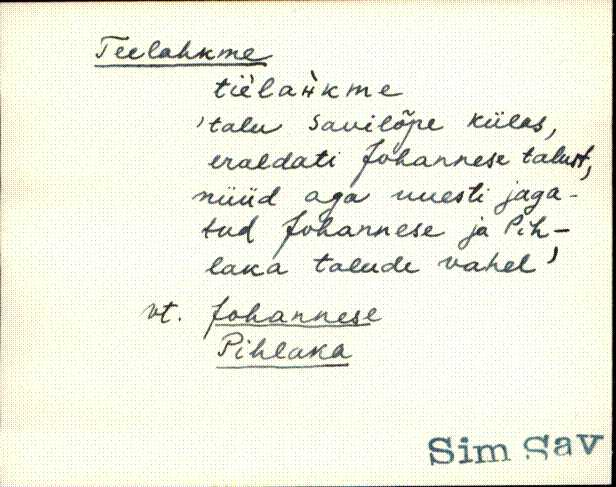 Teelahkme
tièla‛ʜ̀kme
'talu Savilõpe külas,
eraldati Johannese talust,
nüüd aga uuesti jaga-
tud Johannese ja Pih-
laka talude vahel'
vt. Johannese
Pihlaka
Sim Sav